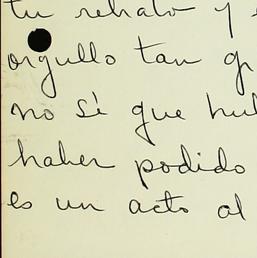 tu retrato y
orgullo tan
no sé que
haber podido
es un acto al